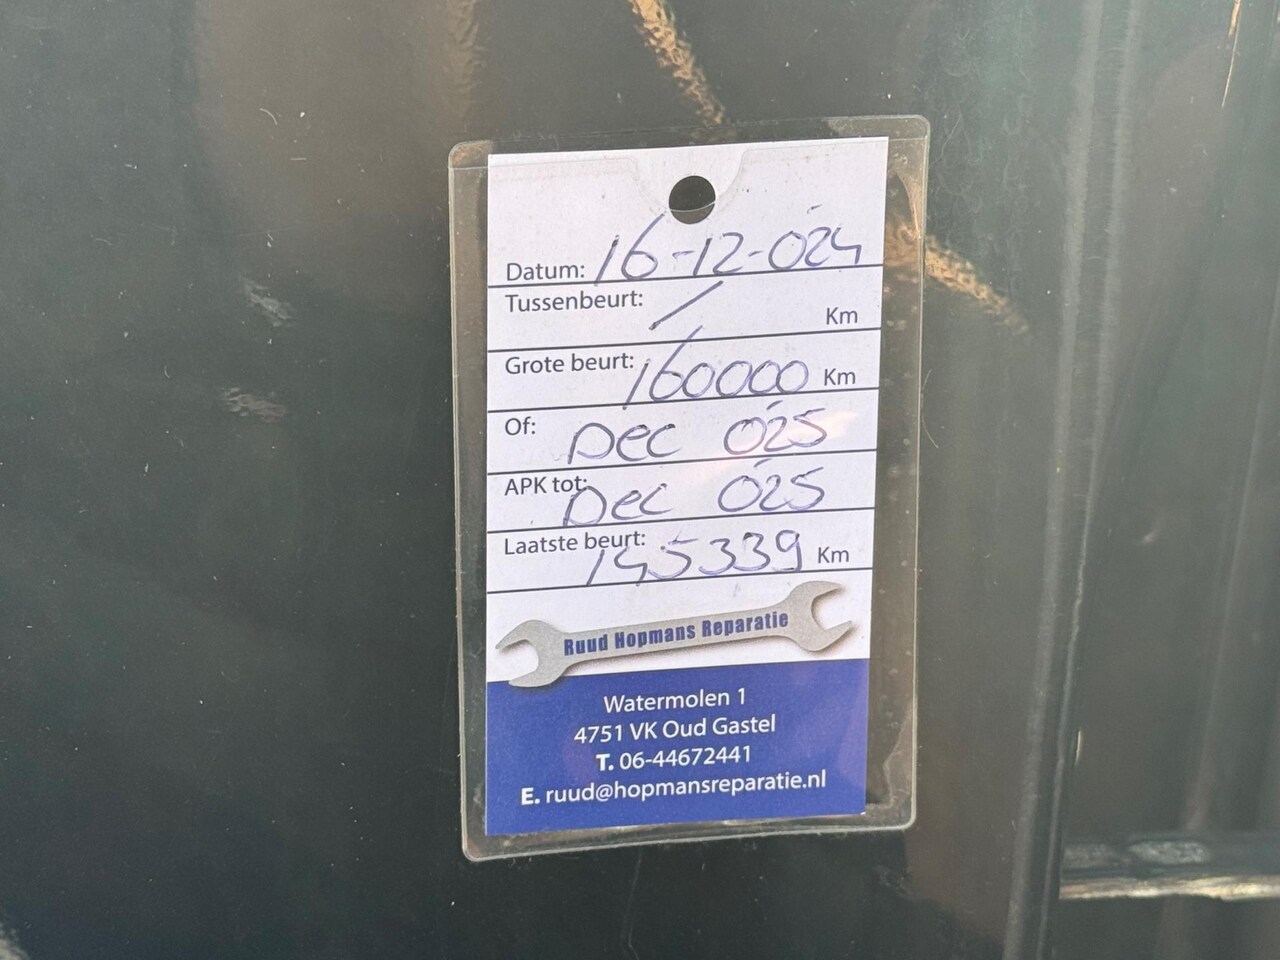 Datum: 16-12-024
Tussenbeurt: / Km
Grote beurt: 160000 Km
Of: Dec 025
APK tot: Dec 025
Laatste beurt: 145339 Km
Ruud Hopmans Reparatie
Watermolen 1
4751 VK Oud Gastel
T. 06-44672441
E. ruud@hopmansreparatie.nl